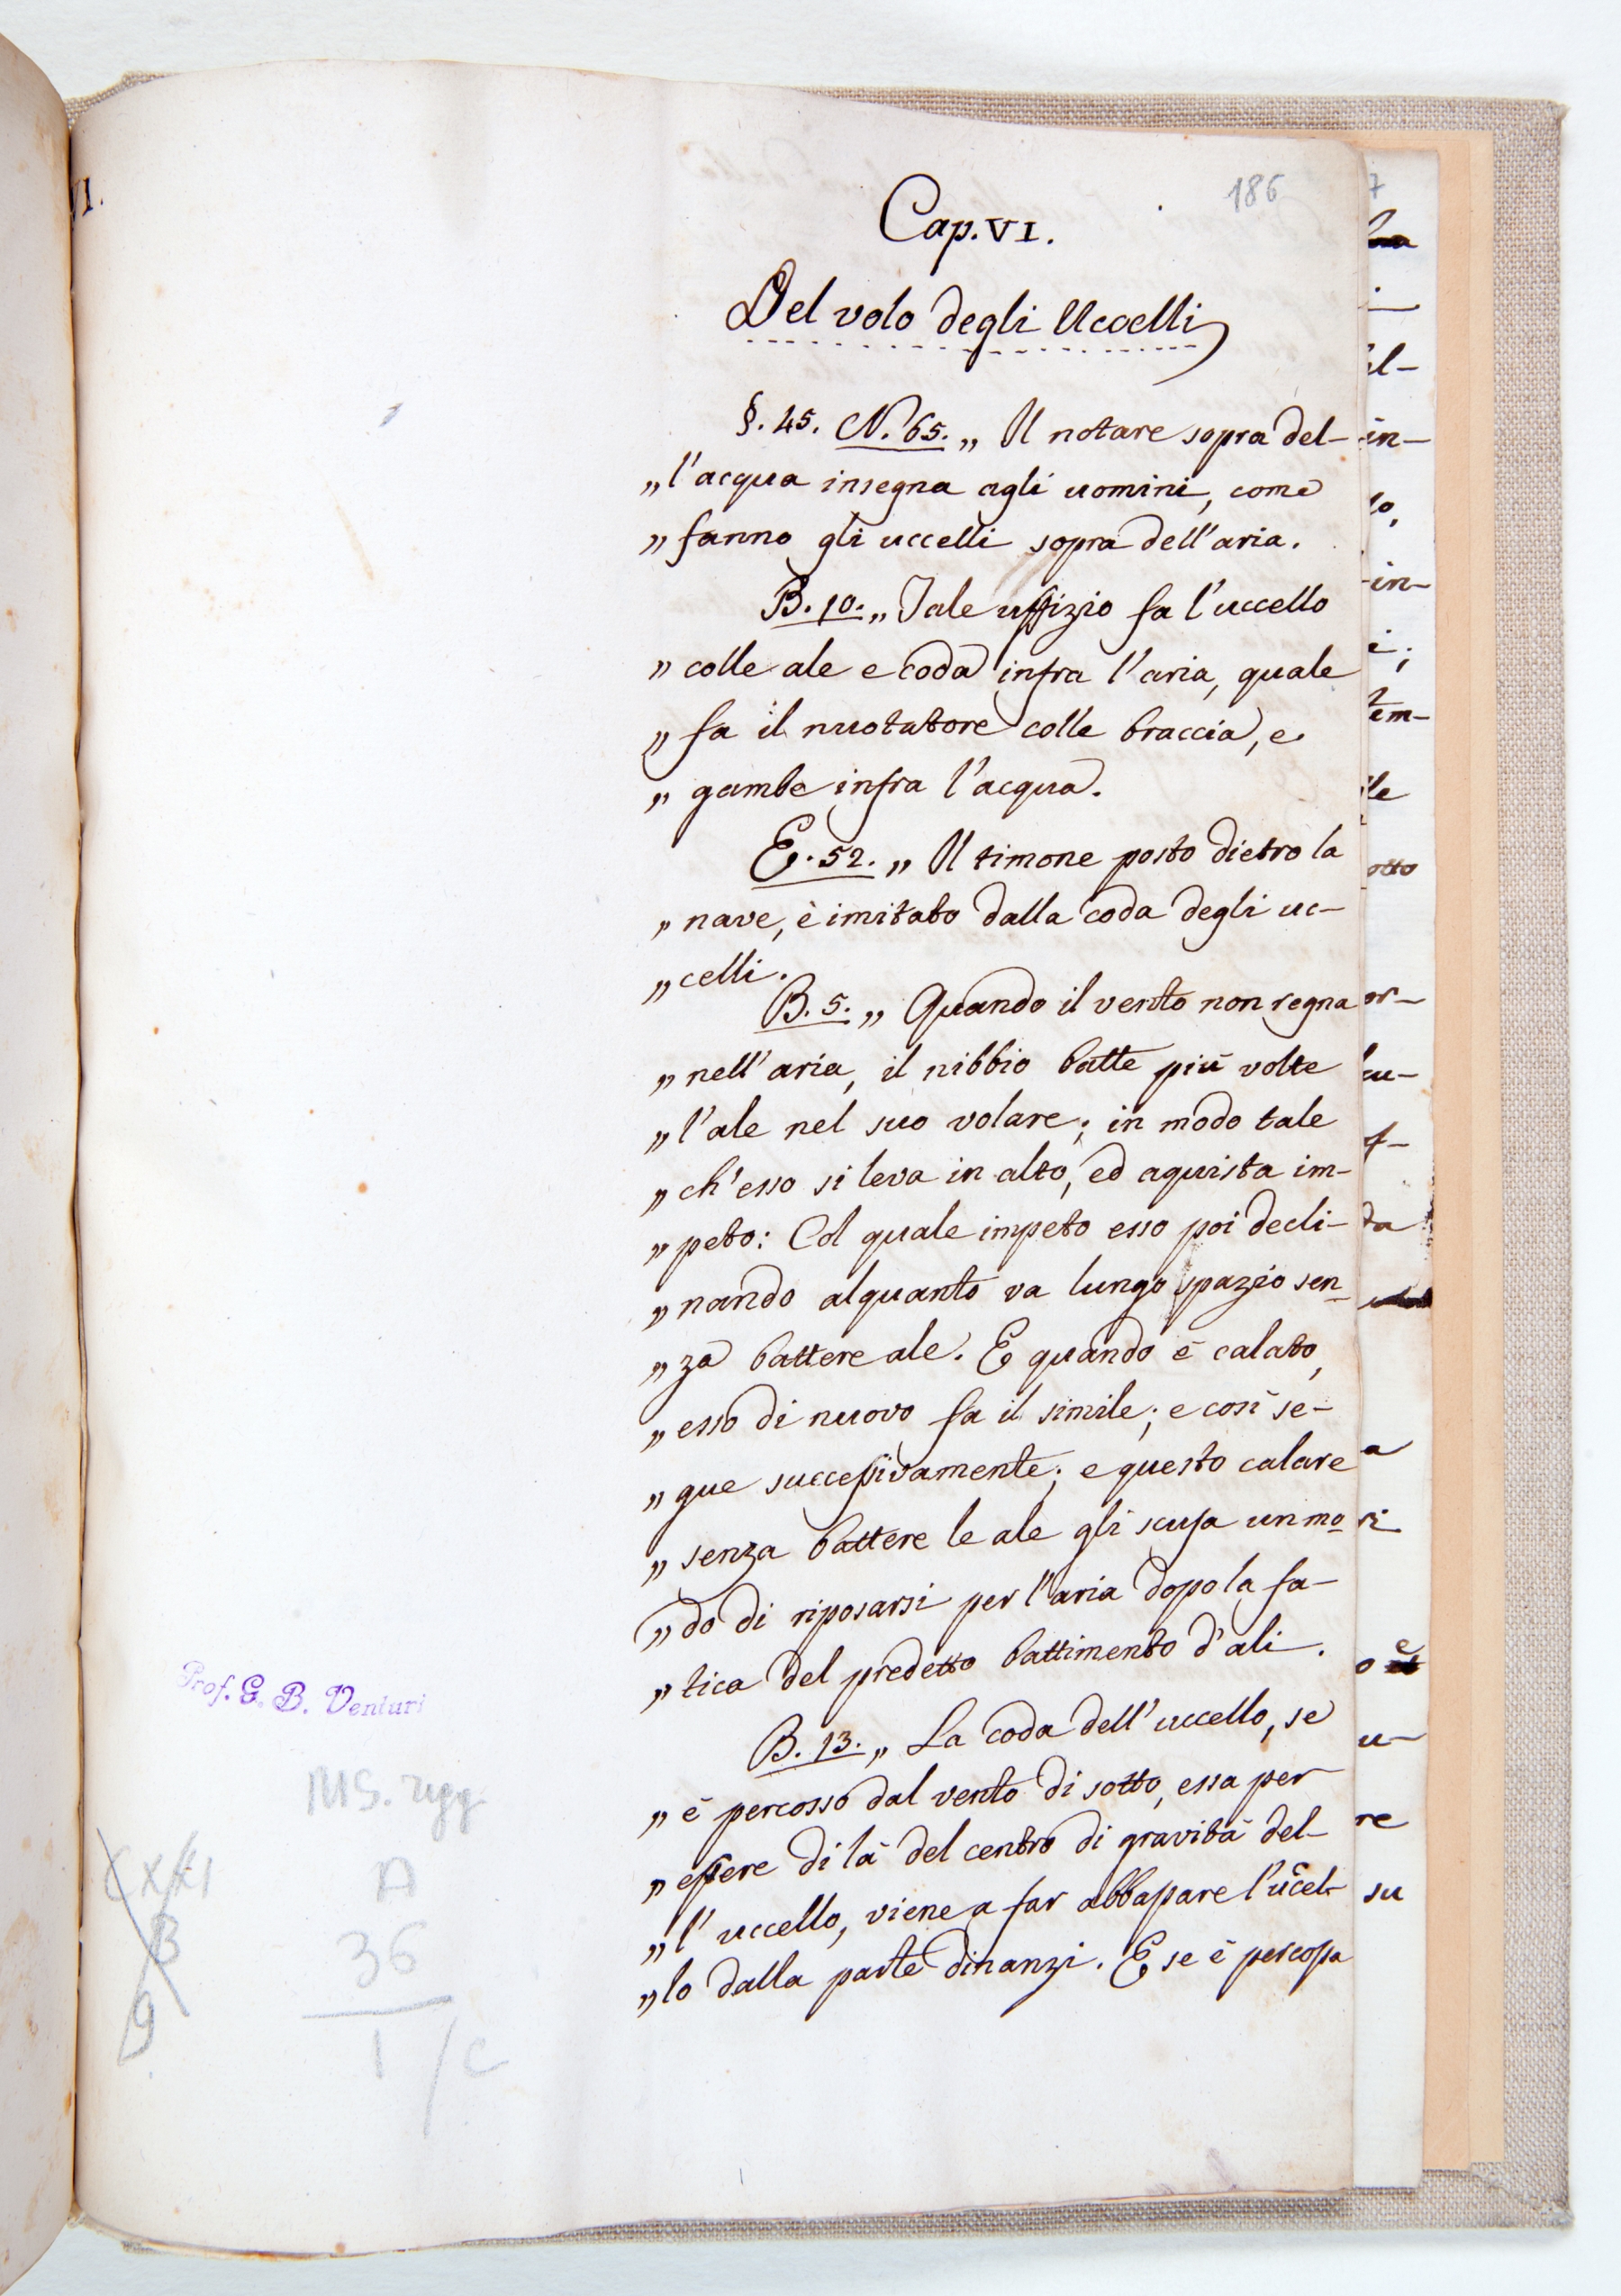 186
Cap. VI.
Del volo degli Uccelli
§. 45. N. 65. „ Il notare sopra del-
„ l'acqua insegna agli uomini, come
„ fanno gli uccelli sopra dell'aria.
B. 10. „ Tale uffizio fa l'uccello
„ colle ale e coda infra l'aria, quale
„ fa il nuotatore colle braccia, e
„ gambe infra l'acqua.
E. 52. „ Il timone posto dietro la
„ nave, è imitato dalla coda degli uc-
„ celli.
B. 5. „ Quando il vento non regna
„ nell'aria, il nibbio batte più volte
„ l'ale nel suo volare; in modo tale
„ ch'esso si leva in alto, ed aquista im-
„ peto: Col quale impeto esso poi decli-
„ nando alquanto va lungo spazio sen-
„ za battere ale. E quando è calato,
„ esso di nuovo fa il simile; e così se-
„ gue successivamente; e questo calare
„ senza battere le ale gli scusa un mo-
„ do di riposarsi per l'aria dopo la fa-
„ tica del predetto battimento d'ali.
B. 13. „ La coda dell'uccello, se
„ è percosso dal vento di sotto, essa per
„ essere di là del centro di gravità del-
„ l'uccello, viene a far abbassare l'uccel-
„ lo dalla parte dinanzi. E se è percossa
Prof. G. B. Venturi
MS. regg.
A
36
1/c
B
9